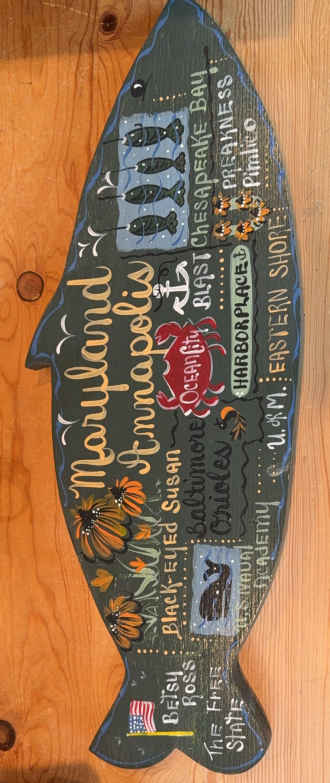 Maryland
Annapolis
CHESAPEAKE BAY!
PREAKNESS
Pimlico
BLAST
OCEAN City
HARBORPLACE
EASTERN SHORE
BLACK-EYED SUSAN
Baltimore
Orioles
U of M.
U.S. NAVAL
Academy
BETSY
ROSS
THE FREE
STATE